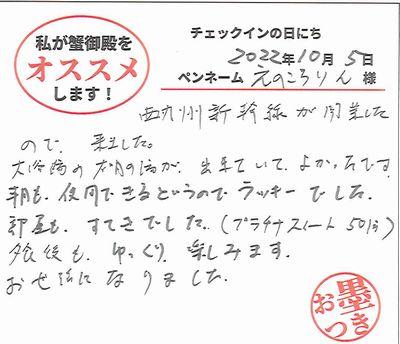 私が蟹御殿を
オススメ
します!
チェックインの日にち
2022年10月5日
ペンネーム えのころりん 様
西九州新幹線が開業した
ので、来ました。
大浴場の有明の湯が、出来ていて、よかったです。
朝も、使用できるというのでラッキーでした。
部屋も、すてきでした。(プラチナスイート 501号)
夕食後も、ゆっくり、楽しみます。
お世話になりました。
お墨つき